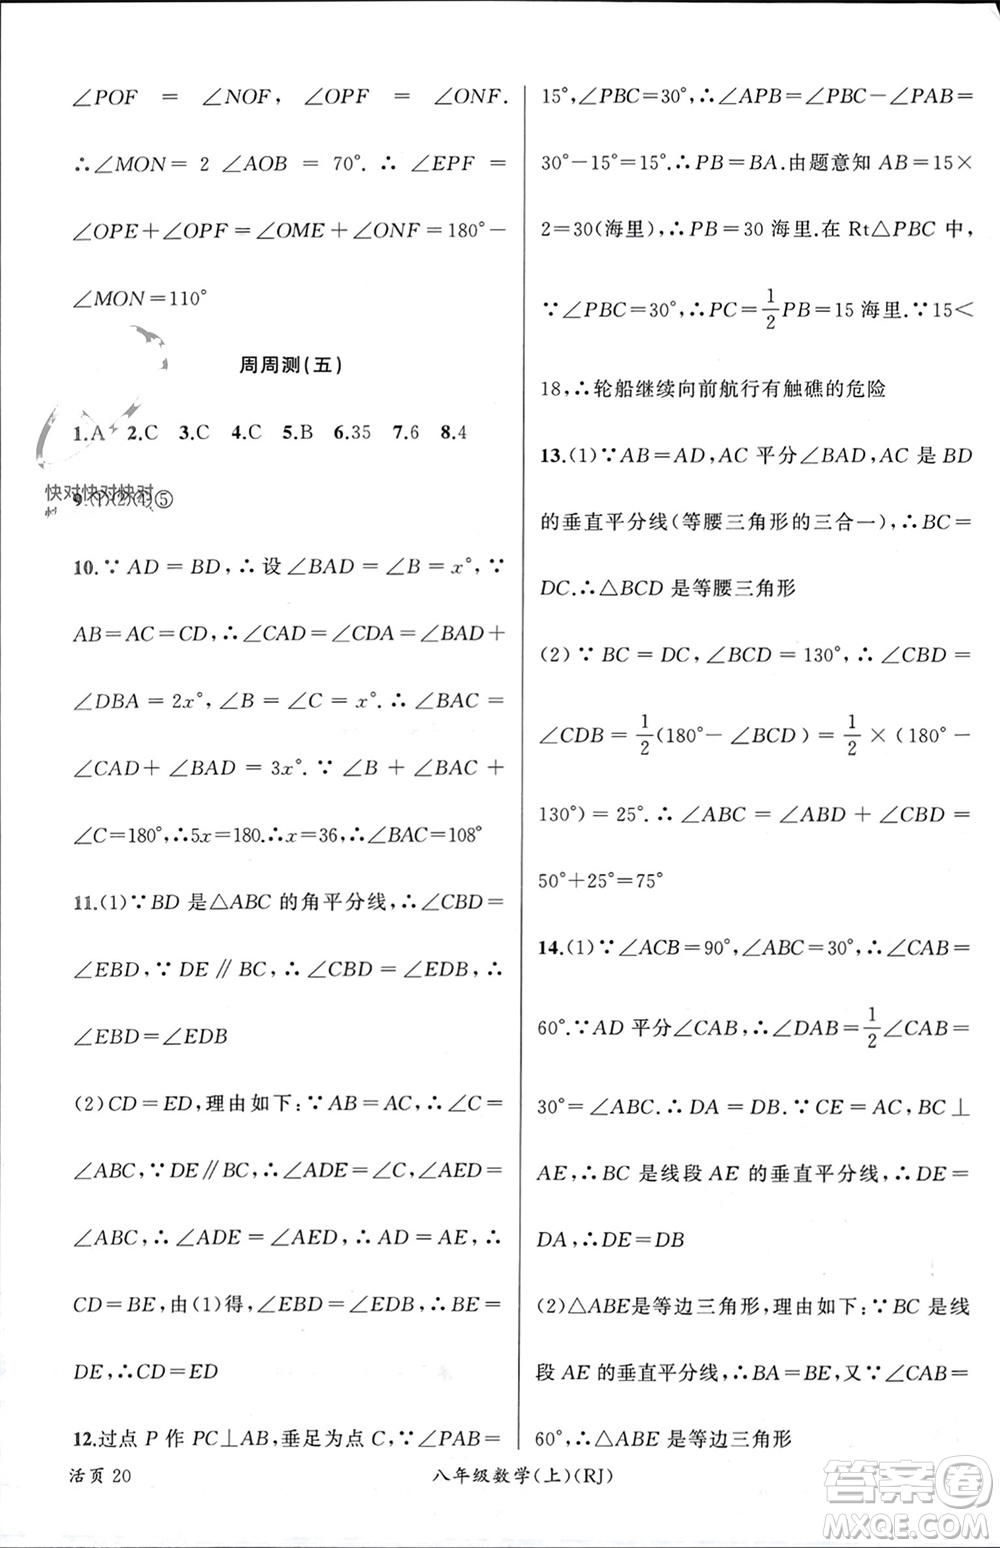 ∠POF = ∠NOF, ∠OPF = ∠ONF.
∴∠MON = 2 ∠AOB = 70°. ∴ ∠EPF =
∠OPE+∠OPF = ∠OME+∠ONF = 180°−
∠MON=110°
周周测(五)
1.A 2.C 3.C 4.C 5.B 6.35 7.6 8.4
快对快对快对
9.①②④⑤
10.∵ AD = BD, ∴ 设 ∠BAD = ∠B = x°, ∵
AB=AC=CD, ∴∠CAD=∠CDA=∠BAD+
∠DBA = 2x°, ∠B = ∠C = x°. ∴ ∠BAC =
∠CAD+ ∠BAD = 3x°. ∵ ∠B + ∠BAC +
∠C=180°,∴5x=180.∴x=36,∴∠BAC=108°
11.(1)∵BD 是△ABC 的角平分线,∴∠CBD=
∠EBD, ∵DE∥BC, ∴∠CBD = ∠EDB, ∴
∠EBD=∠EDB
(2)CD=ED,理由如下:∵AB=AC,∴∠C=
∠ABC,∵DE∥BC,∴∠ADE=∠C,∠AED=
∠ABC, ∴ ∠ADE = ∠AED, ∴ AD = AE, ∴
CD=BE,由(1)得,∠EBD=∠EDB,∴BE=
DE,∴CD=ED
12.过点 P 作 PC⊥AB,垂足为点 C,∵∠PAB=
15°,∠PBC=30°,∴∠APB=∠PBC−∠PAB=
30°−15°=15°.∴PB=BA.由题意知 AB=15×
2=30(海里),∴PB=30 海里.在 Rt△PBC 中,
∵∠PBC=30°,∴PC=1/2PB=15 海里.∵15<
18,∴轮船继续向前航行有触礁的危险
13.(1)∵AB=AD,AC 平分∠BAD,AC 是 BD
的垂直平分线(等腰三角形的三合一),∴BC=
DC.∴△BCD 是等腰三角形
(2) ∵ BC = DC, ∠BCD = 130°, ∴ ∠CBD =
∠CDB=1/2(180°− ∠BCD)=1/2×(180°−
130°)=25°.∴∠ABC=∠ABD+∠CBD=
50°+25°=75°
14.(1)∵∠ACB=90°,∠ABC=30°,∴∠CAB=
60°.∵AD 平分∠CAB,∴∠DAB=1/2∠CAB=
30°=∠ABC.∴DA=DB.∵CE=AC,BC⊥
AE,∴BC 是线段 AE 的垂直平分线,∴DE=
DA,∴DE=DB
(2)△ABE是等边三角形,理由如下:∵BC 是线
段 AE 的垂直平分线,∴BA=BE,又∵∠CAB=
60°,∴△ABE 是等边三角形
活页 20
八年级数学(上)(RJ)
答案圈
MXQE.COM